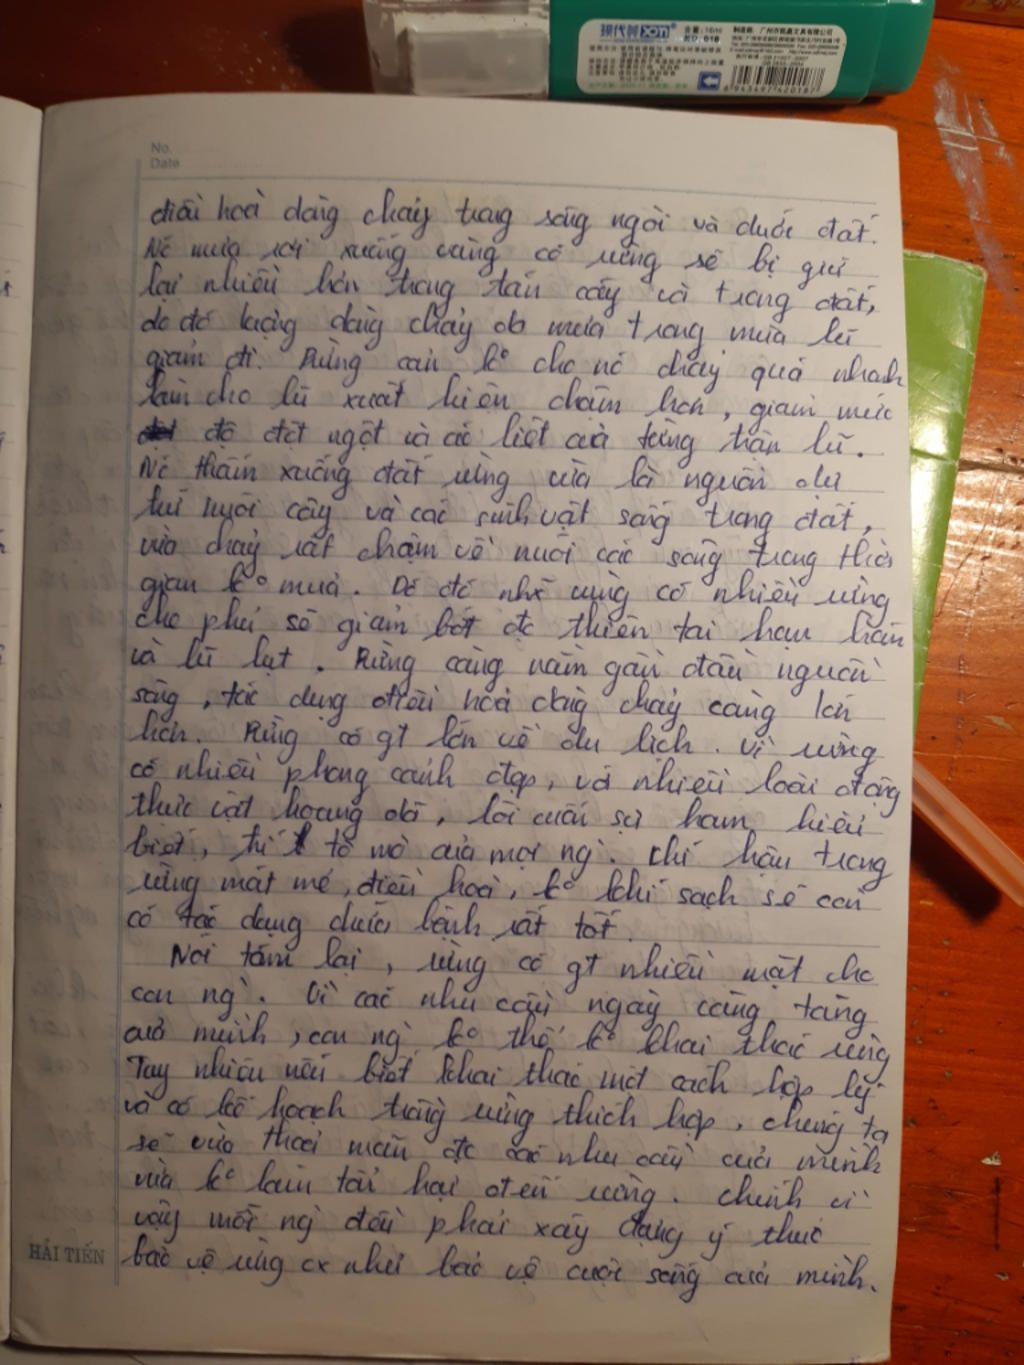 现代美 XM
含量: 16ml
制造商: 广州市凯鑫文具有限公司
6 943497 420187
No.
Date
điều hoà dòng chảy trong sông ngòi và dưới đất.
Nc mưa rơi xuống vùng có rừng sẽ bị giữ
lại nhiều hơn trong tán cây và trong đất,
do đó lượng dòng chảy do mưa trong mùa lũ
giảm đi. Rừng cản ko cho nc chảy quá nhanh
làm cho lũ xuất hiện chậm hơn, giảm mức
độ đột ngột và ác liệt của từng trận lũ.
Nc thấm xuống đất rừng vừa là nguồn dự
trữ nuôi cây và các sinh vật sống trong đất,
vừa chảy rất chậm về nuôi các sông trong thời
gian ko mưa. Do đó những vùng có nhiều rừng
che phủ sẽ giảm bớt đc thiên tai hạn hán
và lũ lụt. Rừng càng nằm gần đầu nguồn
sông, tác dụng điều hoà dòng chảy càng lớn
hơn. Rừng có gt lớn về du lịch. Vì rừng
có nhiều phong cảnh đẹp, và nhiều loài động
thực vật hoang dã, lôi cuốn sự ham hiểu
biết, trí tò mò của mọi ng`. Khí hậu trong
rừng mát mẻ, điều hoà, ko khí sạch sẽ còn
có tác dụng chữa bệnh rất tốt.
Nói tóm lại, rừng có gt nhiều mặt cho
con ng`. Vì các nhu cầu ngày càng tăng
của mình, con ng` ko thể ko khai thác rừng
Tuy nhiên nếu biết khai thác một cách hợp lý
và có kế hoạch trồng rừng thích hợp, chúng ta
sẽ vừa thoả mãn đc các nhu cầu của mình
vừa ko làm tổn hại đến rừng. Chính vì
vậy mỗi ng` đều phải xây dựng ý thức
bảo vệ rừng cx như bảo vệ cuộc sống của mình.
HẢI TIẾN